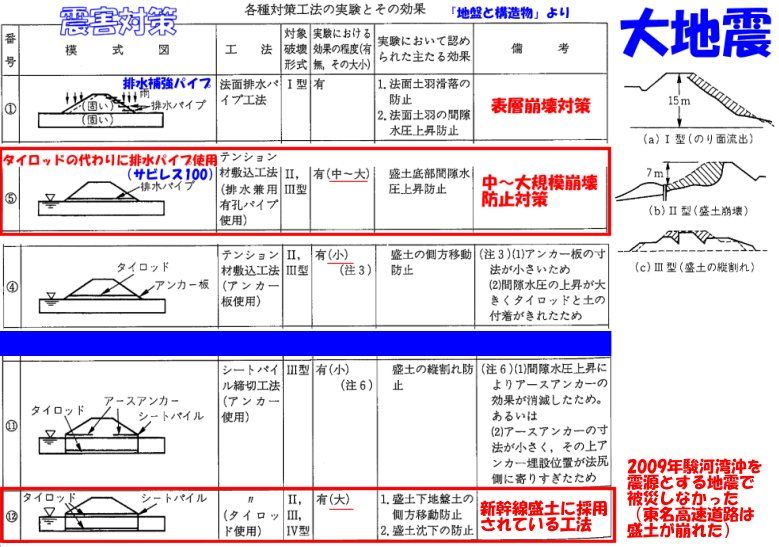 震害対策
各種対策工法の実験とその効果 「地盤と構造物」より
大地震
番号
模式図
工法
対象破壊形式
実験における効果の程度(有無,その大小)
実験において認められた主たる効果
備考
①
排水補強パイプ
雨
(固い)
排水パイプ
(固い)
法面排水パイプ工法
Ⅰ型
有
1.法面土羽滑落の防止
2.法面土羽の間隙水圧上昇防止
表層崩壊対策
⑤
タイロッドの代わりに排水パイプ使用
(サビレス100)
排水パイプ
テンション材敷込工法(排水兼用有孔パイプ使用)
Ⅱ,Ⅲ型
有(中〜大)
盛土底部間隙水圧上昇防止
中〜大規模崩壊防止対策
④
タイロッド
アンカー板
テンション材敷込工法(アンカー板使用)
Ⅱ,Ⅲ型
有(小)
(注3)
盛土の側方移動防止
(注3)(1)アンカー板の寸法が小さいため
(2)間隙水圧の上昇が大きくタイロッドと土の付着がきれたため
⑪
アースアンカー
タイロッド
シートパイル
シートパイル締切工法(アンカー使用)
Ⅲ型
有(小)
(注6)
盛土の縦割れ防止
(注6)(1)間隙水圧上昇によりアースアンカーの効果が消滅したため。
あるいは
(2)アースアンカーの寸法が小さく,その上アンカー埋設位置が法尻側に寄りすぎたため
⑫
タイロッド
シートパイル
〃
(タイロッド使用)
Ⅱ,Ⅲ,Ⅳ型
有(大)
1.盛土下地盤土の側方移動防止
2.盛土沈下の防止
新幹線盛土に採用されている工法
15m
(a)Ⅰ型(のり面流出)
7m
(b)Ⅱ型(盛土崩壊)
(c)Ⅲ型(盛土の縦割れ)
2009年駿河湾沖を
震源とする地震で
被災しなかった
(東名高速道路は
盛土が崩れた)